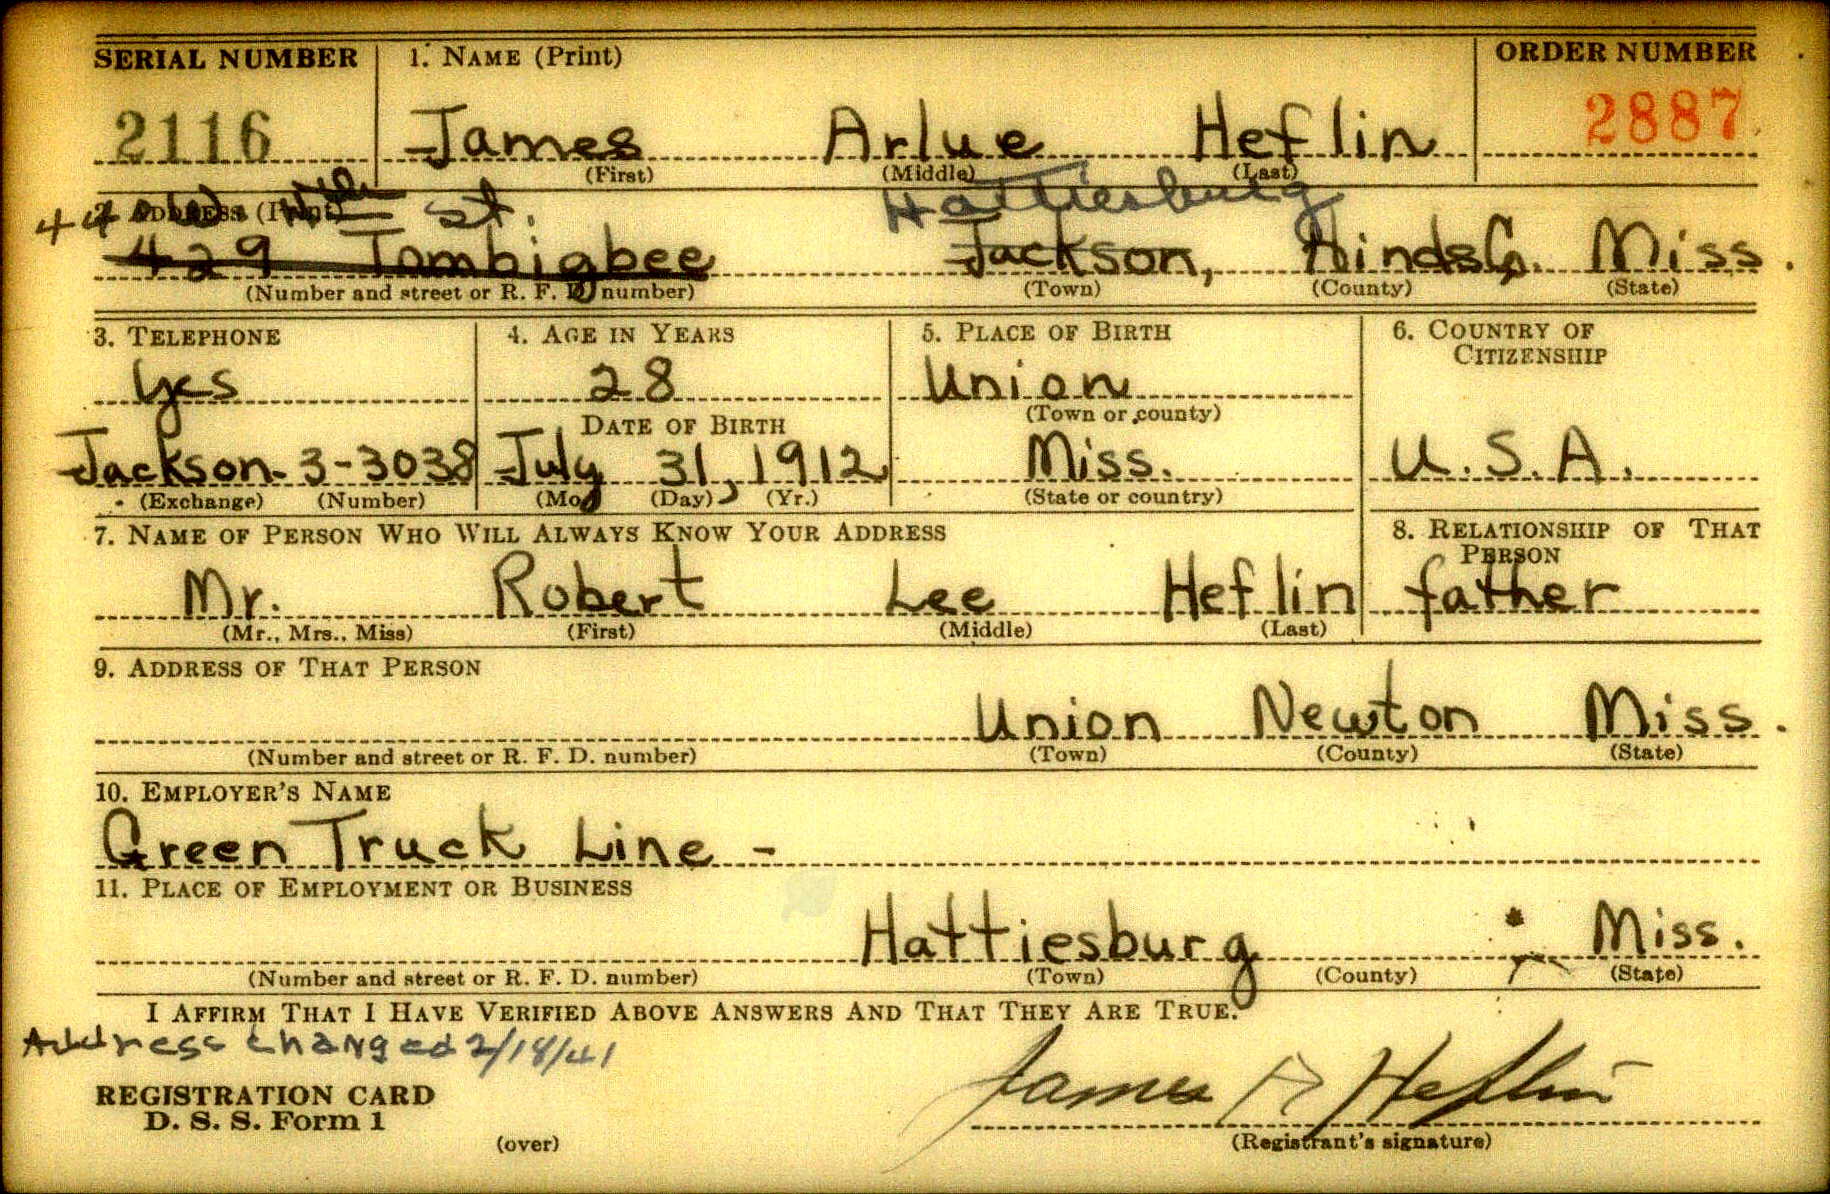 SERIAL NUMBER 1. NAME (Print) ORDER NUMBER
2116 James Arlue Heflin 2887
(First) (Middle) (Last)
2. ADDRESS (Print) St. Hattiesburg
429 Tombigbee Jackson, Hinds Co. Miss.
(Number and street or R. F. D. number) (Town) (County) (State)
3. TELEPHONE 4. AGE IN YEARS 5. PLACE OF BIRTH 6. COUNTRY OF
CITIZENSHIP
Yes 28 Union
DATE OF BIRTH (Town or county)
Jackson-3-3038 July 31, 1912 Miss. U.S.A.
(Exchange) (Number) (Mo.) (Day) (Yr.) (State or country)
7. NAME OF PERSON WHO WILL ALWAYS KNOW YOUR ADDRESS 8. RELATIONSHIP OF THAT
PERSON
Mr. Robert Lee Heflin father
(Mr., Mrs., Miss) (First) (Middle) (Last)
9. ADDRESS OF THAT PERSON
Union Newton Miss.
(Number and street or R. F. D. number) (Town) (County) (State)
10. EMPLOYER'S NAME
Green Truck Line -
11. PLACE OF EMPLOYMENT OR BUSINESS
Hattiesburg Miss.
(Number and street or R. F. D. number) (Town) (County) (State)
I AFFIRM THAT I HAVE VERIFIED ABOVE ANSWERS AND THAT THEY ARE TRUE.
Address changed 2/18/41
James A Heflin
REGISTRATION CARD
D. S. S. Form 1
(over) (Registrant's signature)